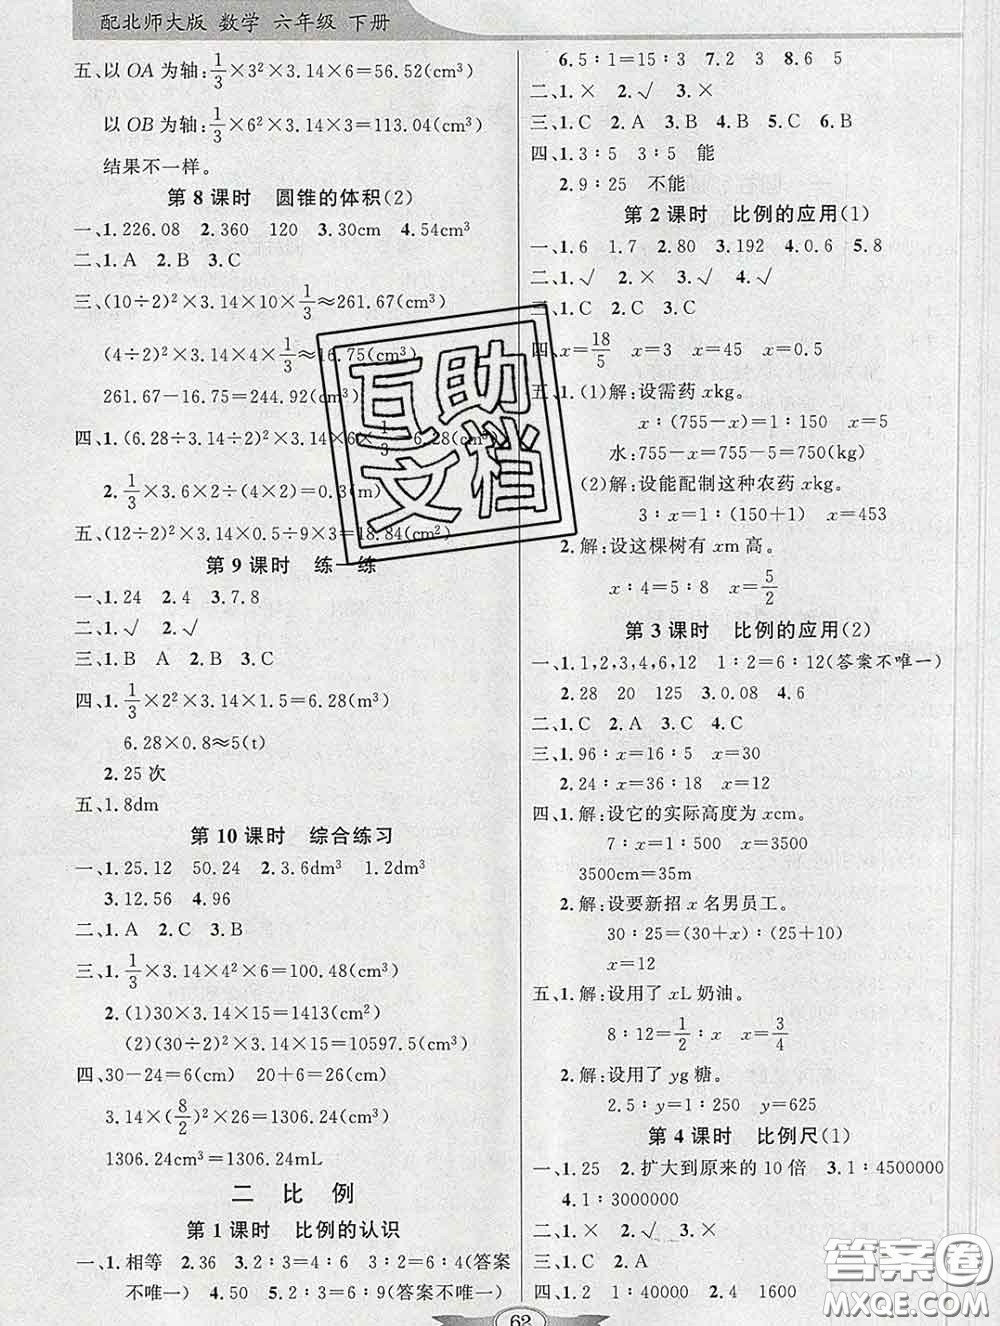 配北师大版 数学 六年级 下册
五、以OA为轴:1/3×3²×3.14×6=56.52(cm³)
以OB为轴:1/3×6²×3.14×3=113.04(cm³)
结果不一样。
第8课时 圆锥的体积(2)
一、1.226.08 2.360 120 3.30cm 4.54cm³
二、1.A 2.B 3.C
三、(10÷2)²×3.14×10×1/3≈261.67(cm³)
(4÷2)²×3.14×4×1/3≈16.75(cm³)
261.67-16.75=244.92(cm³)
四、1.(6.28÷3.14÷2)²×3.14×6×1/3=6.28(cm³)
2.1/3×6×2÷(4×2)=0.(m)
五、(12÷2)²×3.14×0.5÷9×3=18.84(cm²)
第9课时 练一练
一、1.24 2.4 3.7.8
二、1.√ 2.√
三、1.B A 2.B 3.C
四、1.1/3×2²×3.14×1.5=6.28(m³)
6.28×0.8≈5(t)
2.25次
五、1.8dm
第10课时 综合练习
一、1.25.12 50.24 2.3.6dm³ 1.2dm³
3.12.56 4.96
二、1.A 2.C 3.B
三、1.1/3×3.14×4²×6=100.48(cm³)
2.(1)30×3.14×15=1413(cm²)
(2)(30÷2)²×3.14×15=10597.5(cm³)
四、30-24=6(cm) 20+6=26(cm)
3.14×(8/2)²×26=1306.24(cm³)
1306.24cm³=1306.24mL
二 比 例
第1课时 比例的认识
一、1.相等 2.36 3.2∶3=4∶6 3∶2=6∶4(答案
不唯一) 4.50 5.2∶3=6∶9(答案不唯一)
6.5∶1=15∶3 7.2 3 8.6 5
二、1.× 2.√ 3.×
三、1.C 2.A 3.B 4.B 5.C 6.B
四、1.3∶5 3∶5 能
2.9∶25 不能
第2课时 比例的应用(1)
一、1.6 1.7 2.80 3.192 4.0.6 5.8
二、1.√ 2.× 3.√ 4.√
三、1.C 2.C 3.C
四、x=18/5 x=3 x=45 x=0.5
五、1.(1)解:设需药xkg。
x∶(755-x)=1∶150 x=5
水:755-x=755-5=750(kg)
(2)解:设能配制这种农药xkg。
3∶x=1∶(150+1) x=453
2.解:设这棵树有xm高。
x∶4=5∶8 x=5/2
第3课时 比例的应用(2)
一、1.1,2,3,4,6,12 1∶2=6∶12(答案不唯一)
2.28 20 125 3.0.08 4.6
二、1.C 2.A 3.C 4.C
三、1.96∶x=16∶5 x=30
2.24∶x=36∶18 x=12
四、1.解:设它的实际高度为xcm。
7∶x=1∶500 x=3500
3500cm=35m
2.解:设要新招x名男员工。
30∶25=(30+x)∶(25+10)
x=12
五、1.解:设用了xL奶油。
8∶12=1/2∶x x=3/4
2.解:设用了yg糖。
2.5∶y=1∶250 y=625
第4课时 比例尺(1)
一、1.25 2.扩大到原来的10倍 3.1∶4500000
4.1∶3000000
二、1.× 2.√ 3.×
三、1.C 2.A
四、1.1∶40000 2.4 1600
62
互助
文档
答案圈
MXQE.COM